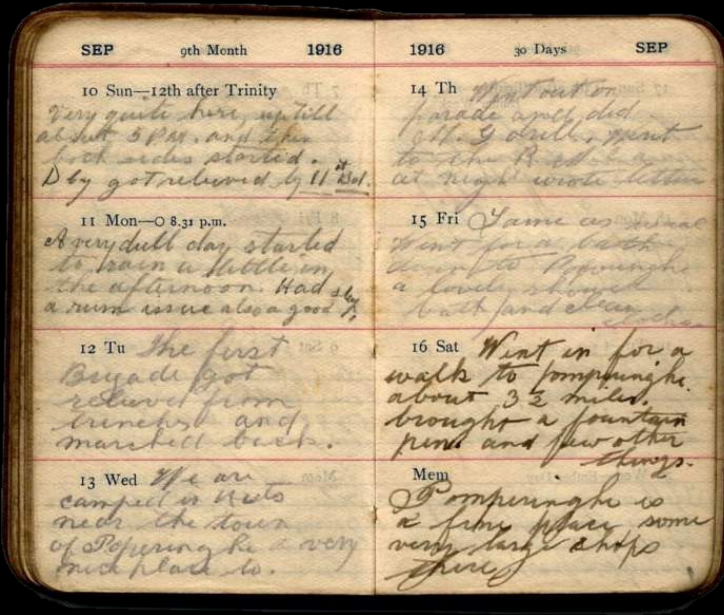 SEP 9th Month 1916
10 Sun—12th after Trinity
Very quite here, up till
about 5 P.M. and then
both sides started.
D by got relieved by 11th Bat.
11 Mon—O 8.31 p.m.
A very dull day started
to rain a little in
the afternoon. Had
a rum issue also a good
12 Tu The first
Brigade got
relieved from
trenches and
marched back.
13 Wed We are
camped in Huts
near the town
of Poperinghe a very
nice place to.
1916 30 Days SEP
14 Th Went out on
parade and did
drill, went
to the
at night wrote letter
15 Fri Same as usual
Went for a bath
down to Popringhe
a lovely shower
bath and clean
16 Sat Went in for a
walk to pompringhe.
about 3½ miles.
brought a fountain
pen and few other
things.
Mem
Pomperinghe is
a fine place some
very large shops
there